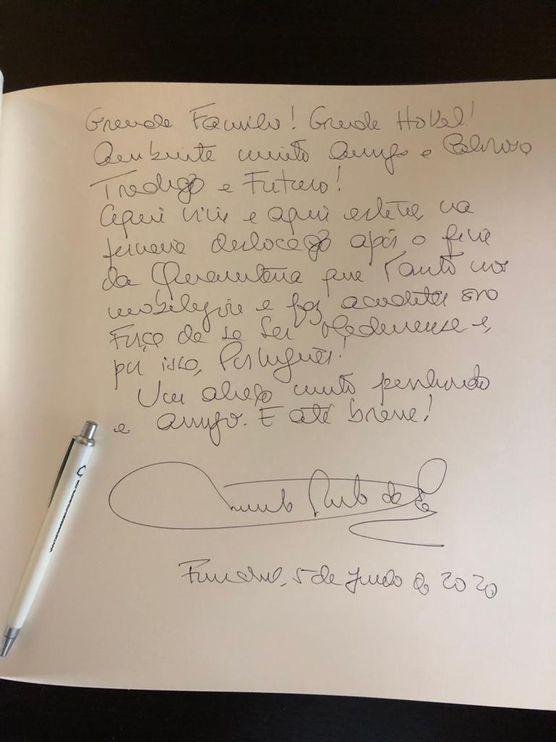 Grande Família! Grande Hotel!
Ambiente muito Amigo e Caloroso
Tradição e Futuro!
Aqui vim e aqui estive, na
primeira deslocação após o fim
da Quarentena que tanto nos
e faz acreditar
Força de se ser Madeirense e,
por isso, Português!
Um abraço muito penhorado
e amigo. E até breve!
Funchal, 5 de Junho de 2020